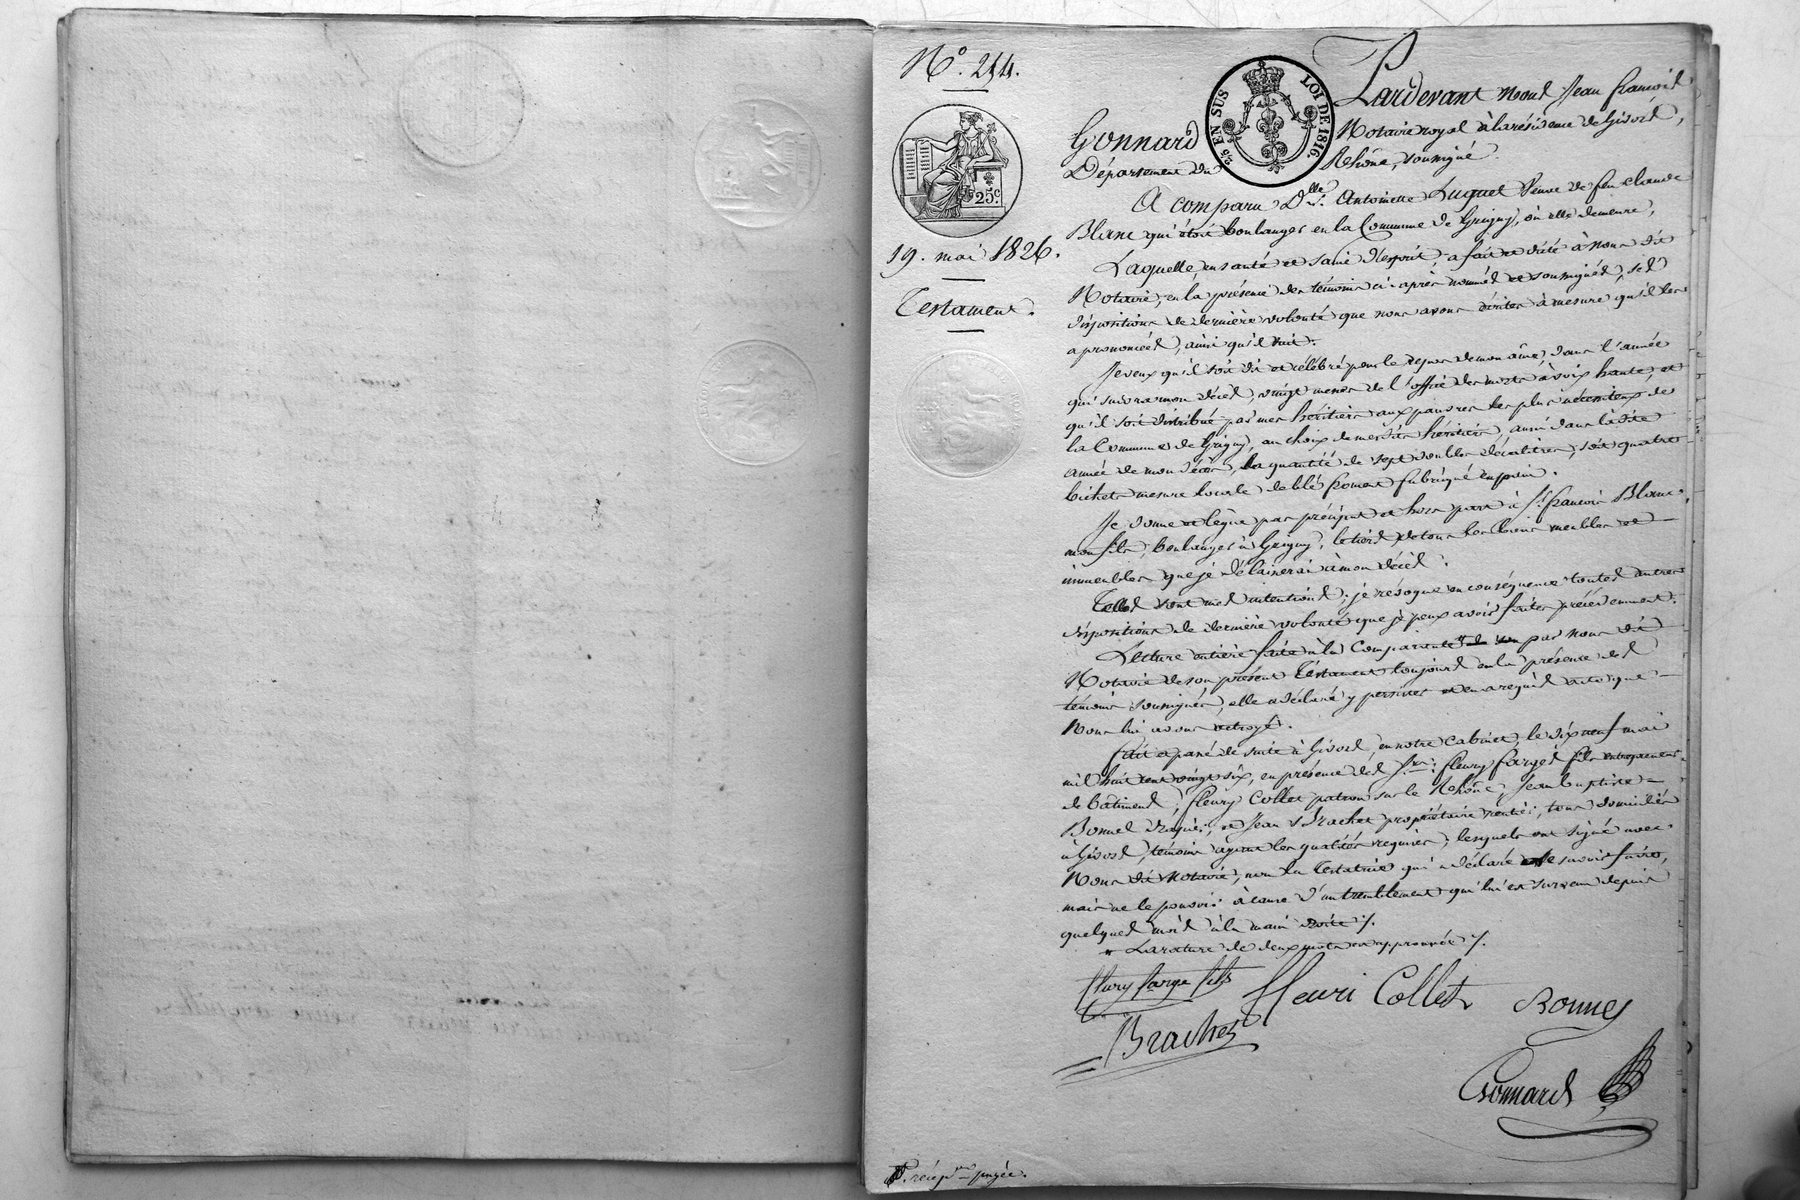 N.° 254.
25 EN SUS
LOI DE 1816.
25.c
19. mai 1826.
Testament.
Pardevant nous Jean françois
Gonnard Notaire royal à la résidence de Givors,
Département du Rhône, soussigné.
A comparu D.lle Antoinette Luquet Veuve de feu Claude
Blanc qui étoit boulanger en la Commune de Grigny, où elle demeure,
Laquelle, en santé et saine d'esprit, a fait et dicté à nous dit
Notaire, en la présence des témoins ci-après nommés et soussignés, ses
dispositions de dernière volonté que nous avons écrites à mesure qu'il les
a prononcées, ainsi qu'il suit.
Je veux qu'il soit dit et célébré pour le repos de mon âme, dans l'année
qui suivra mon décès, vingt messes de l'office des morts à voix haute, et
qu'il soit distribué par mes héritiers aux pauvres les plus nécessiteux de
la Commune de Grigny, au choix de mes dits héritiers, aussi dans la dite
année de mon décès, la quantité de sept doubles décalitres, soit quatre
bichets mesure locale de blé froment fabriqué en pain.
Je donne et lègue par préciput et hors part à S.r françois Blanc,
mon fils, boulanger à Grigny, le tiers de tous les biens meubles et
immeubles que je délaisserai à mon décès.
Telles sont mes intentions; je révoque en conséquence toutes autres
dispositions de dernière volonté que je peux avoir faites précédemment.
Lecture entière faite à la Comparante par nous dit
Notaire de son présent Testament toujours en la présence des
témoins soussignés, elle a déclaré y persister et en a requis acte que
Nous lui avons octroyé.
fait et passé de suite à Givors, en notre Cabinet, le dix neuf mai
mil huit cent vingt six, en présence des S.rs fleury farges fils entrepreneur
de bâtiments, fleury Collet patron sur le Rhône, Jean baptiste
Bonnel, et Jean Brachet propriétaire rentier, tous domiciliés
à Givors, témoins ayant les qualités requises, lesquels ont signé avec
Nous dit Notaire, non la testatrice qui a déclaré le savoir faire,
mais ne le pouvoir à cause d'un tremblement qui lui est survenu depuis
quelques mois à la main droite ./.
* La rature de deux mots est approuvée ./.
fleury farge fils
Henri Collet
Bonnel
Brachet
Gonnard